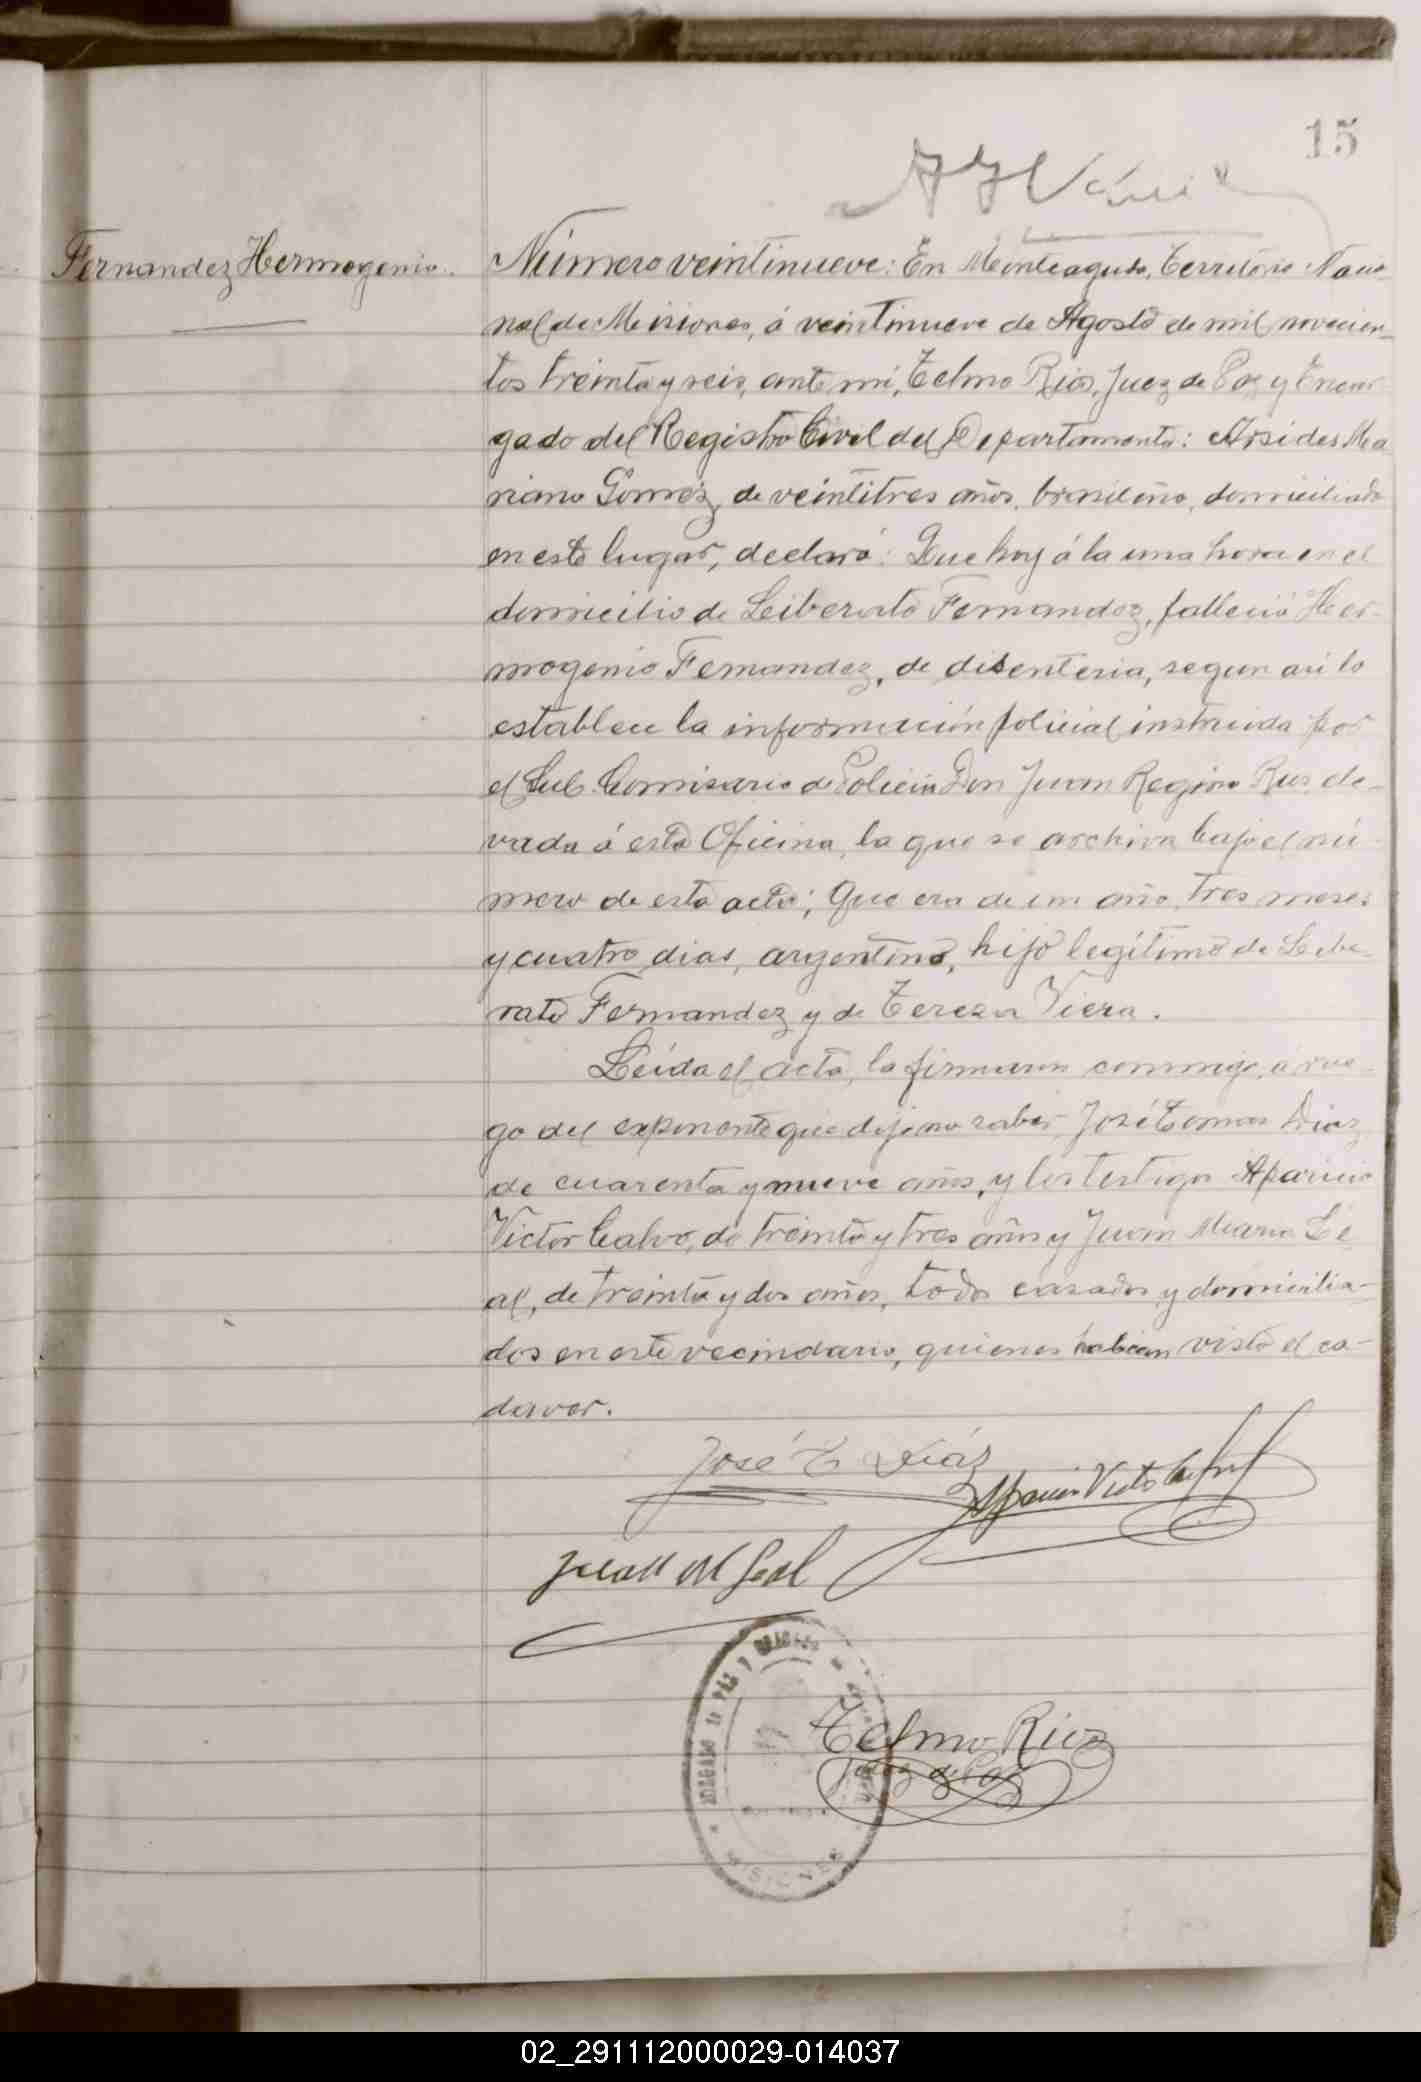 15
Fernandez Hermogenio.
Número veintinueve: En Monteagudo, Territorio Nacio-
nal de Misiones, á veintinueve de Agosto de mil novecien-
tos treinta y seis, ante mí, Telmo Rios, Juez de Paz y Encar-
gado del Registro Civil del Departamento: Arsides Ma
riano Gomez, de veintitres años, brasileño, domiciliado
en este lugar, declaró: Que hoy á la una hora en el
domicilio de Leiberato Fernandez, falleció Her-
mogenio Fernandez, de disenteria, segun asi lo
establece la información policial instruida por
el Sub. Comisario de Policia Don Juan Regino Rus, ele-
vada á esta Oficina, la que se archiva bajo el nú-
mero de esta acta; Que era de un año, tres meses
y cuatro dias, argentino, hijo legítimo de Libe-
rato Fernandez y de Teresa Viera.
Leída el acta, la firmaron conmigo, á rue-
go del exponente que dijo no saber, José Tomas Diaz
de cuarenta y nueve años, y los testigos Aparicio
Victor Calvo, de treinta y tres años y Juan Maria Le-
al, de treinta y dos años, todos casados y domicilia-
dos en este vecindario, quienes habian visto el ca-
daver.
José T Díaz
Aparicio Victor
Juan M Leal
JUZGADO DE PAZ Y
MISIONES
Telmo Rios
Juez de Paz
02_291112000029-014037